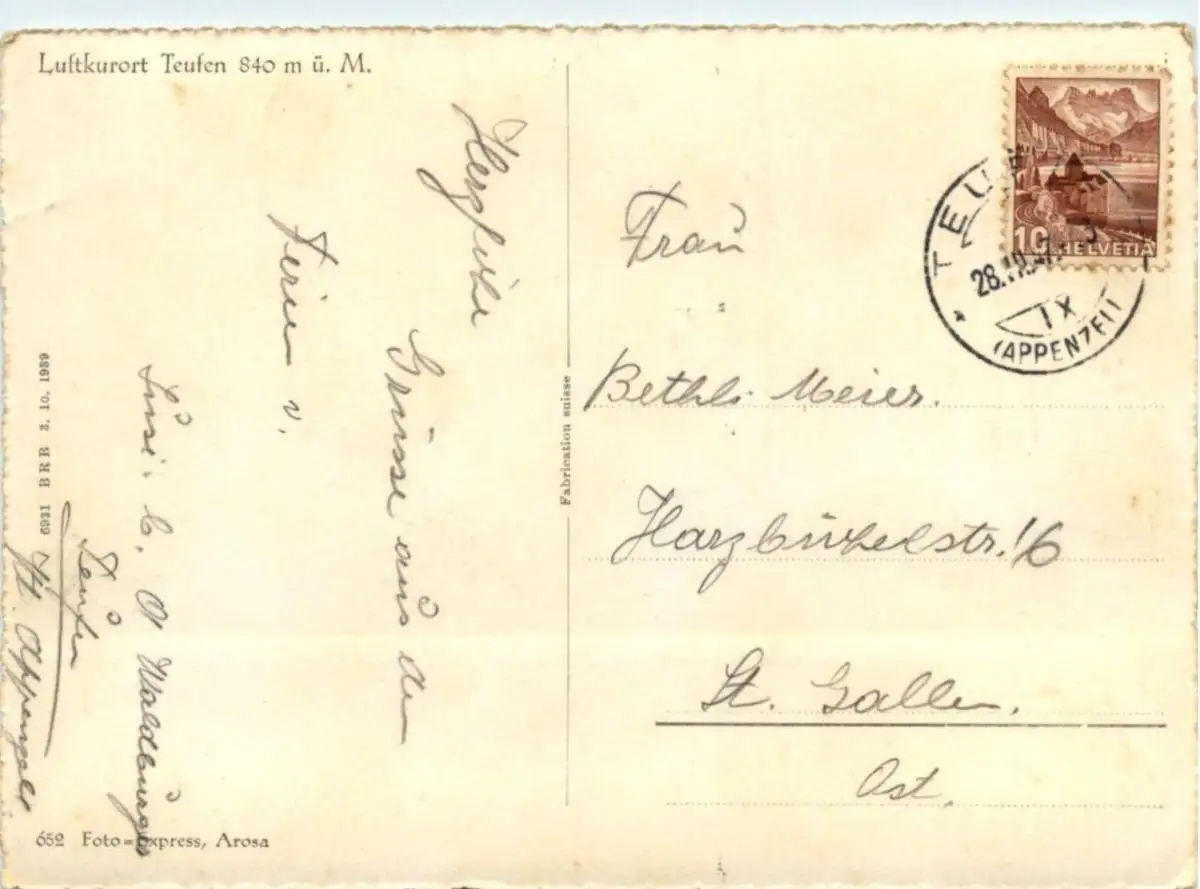 Luftkurort Teufen 840 m ü. M.
Herzliche
Grüsse aus den
Ferien v.
Lüsi. b. A Waldburger
Teufen
Kt. Appenzell
6931 BRB 3. 10. 1939
652 Foto=Express, Arosa
Fabrication suisse
10 HELVETIA
TEU
28.
IX
(APPENZELL)
Frau
Bethli Meier.
Harzbüchelstr. 16
St. Gallen.
Ost.